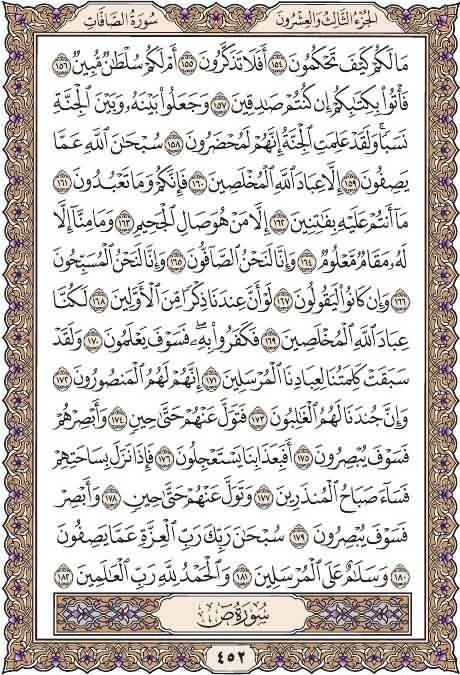 الجزء الثالث والعشرون
سورة الصافات
مَا لَكُمْ كَيْفَ تَحْكُمُونَ ١٥٤ أَفَلَا تَذَكَّرُونَ ١٥٥ أَمْ لَكُمْ سُلْطَٰنٌ مُّبِينٌ ١٥٦
فَأْتُوا۟ بِكِتَٰبِكُمْ إِن كُنتُمْ صَٰدِقِينَ ١٥٧ وَجَعَلُوا۟ بَيْنَهُۥ وَبَيْنَ ٱلْجِنَّةِ
نَسَبًا ۚ وَلَقَدْ عَلِمَتِ ٱلْجِنَّةُ إِنَّهُمْ لَمُحْضَرُونَ ١٥٨ سُبْحَٰنَ ٱللَّهِ عَمَّا
يَصِفُونَ ١٥٩ إِلَّا عِبَادَ ٱللَّهِ ٱلْمُخْلَصِينَ ١٦٠ فَإِنَّكُمْ وَمَا تَعْبُدُونَ ١٦١
مَآ أَنتُمْ عَلَيْهِ بِفَٰتِنِينَ ١٦٢ إِلَّا مَنْ هُوَ صَالِ ٱلْجَحِيمِ ١٦٣ وَمَا مِنَّآ إِلَّا
لَهُۥ مَقَامٌ مَّعْلُومٌ ١٦٤ وَإِنَّا لَنَحْنُ ٱلصَّآفُّونَ ١٦٥ وَإِنَّا لَنَحْنُ ٱلْمُسَبِّحُونَ
١٦٦ وَإِن كَانُوا۟ لَيَقُولُونَ ١٦٧ لَوْ أَنَّ عِندَنَا ذِكْرًا مِّنَ ٱلْأَوَّلِينَ ١٦٨ لَكُنَّا
عِبَادَ ٱللَّهِ ٱلْمُخْلَصِينَ ١٦٩ فَكَفَرُوا۟ بِهِۦ ۖ فَسَوْفَ يَعْلَمُونَ ١٧٠ وَلَقَدْ
سَبَقَتْ كَلِمَتُنَا لِعِبَادِنَا ٱلْمُرْسَلِينَ ١٧١ إِنَّهُمْ لَهُمُ ٱلْمَنصُورُونَ ١٧٢
وَإِنَّ جُندَنَا لَهُمُ ٱلْغَٰلِبُونَ ١٧٣ فَتَوَلَّ عَنْهُمْ حَتَّىٰ حِينٍ ١٧٤ وَأَبْصِرْهُمْ
فَسَوْفَ يُبْصِرُونَ ١٧٥ أَفَبِعَذَابِنَا يَسْتَعْجِلُونَ ١٧٦ فَإِذَا نَزَلَ بِسَاحَتِهِمْ
فَسَآءَ صَبَاحُ ٱلْمُنذَرِينَ ١٧٧ وَتَوَلَّ عَنْهُمْ حَتَّىٰ حِينٍ ١٧٨ وَأَبْصِرْ
فَسَوْفَ يُبْصِرُونَ ١٧٩ سُبْحَٰنَ رَبِّكَ رَبِّ ٱلْعِزَّةِ عَمَّا يَصِفُونَ
١٨٠ وَسَلَٰمٌ عَلَى ٱلْمُرْسَلِينَ ١٨١ وَٱلْحَمْدُ لِلَّهِ رَبِّ ٱلْعَٰلَمِينَ ١٨٢
سُورَةُ ص
٤٥٢